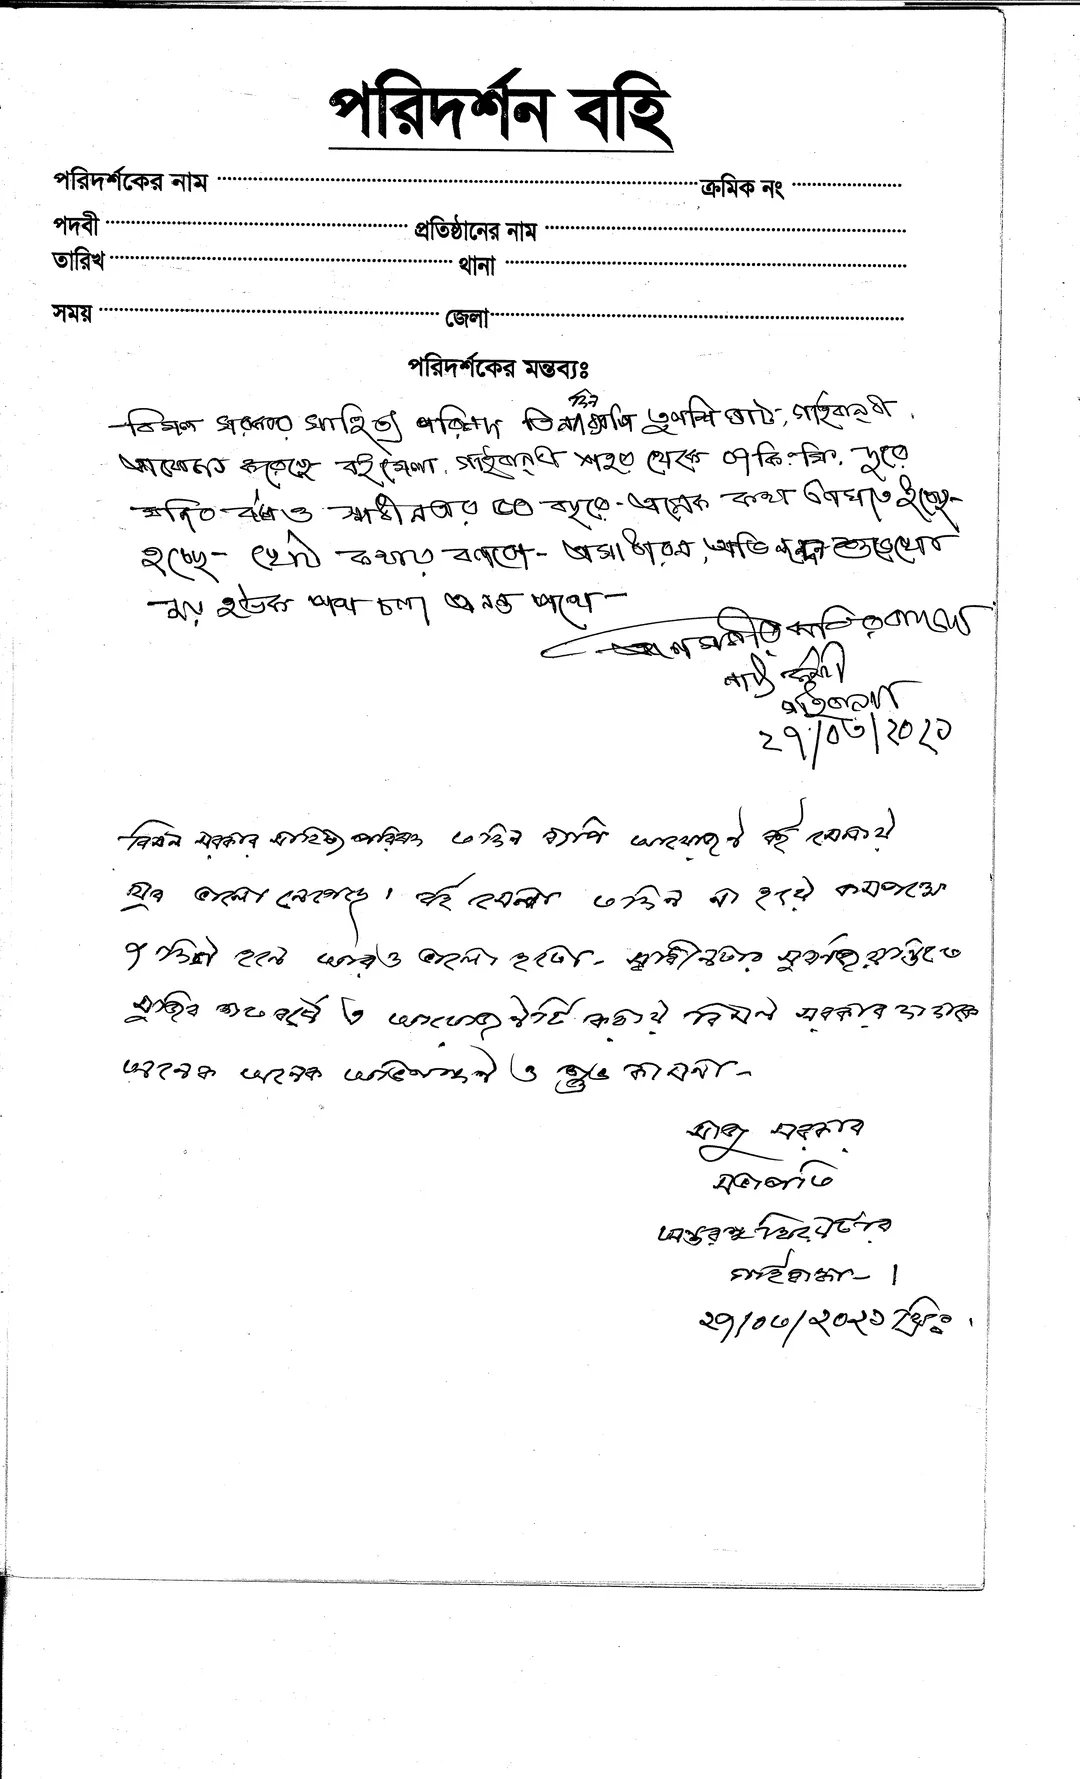 পরিদর্শন বহি
পরিদর্শকের নাম ক্রমিক নং
পদবী প্রতিষ্ঠানের নাম
তারিখ থানা
সময় জেলা
পরিদর্শকের মন্তব্যঃ
বিমল সরকার সাহিত্য পরিষদ তিন দিন ব্যাপি তুলশিঘাট, গাইবান্ধা
করেছে বই মেলা, গাইবান্ধা শহর থেকে ০৭ কি.মি. দুরে
স্বাধীনতার ৫০ বছরে- অনেক কথা বলাতে ইচ্ছে-
হচ্ছে- কথায় বলবো- অসাধারন, অভিনন্দন
হউক পথ চলা অনন্ত পথে-
নাট্য কর্মী
গাইবান্ধা
২৭/০৩/২০২১
বিমল সরকার সাহিত্য পরিষদ ৩ দিন ব্যাপি আয়োজনে বই মেলায়
খুব ভালো লেগেছে। বই মেলা ৩ দিন না হয়ে কমপক্ষে
৭ দিন হলে আরও ভালো হতো- স্বাধীনতার সুবর্ণ জয়ন্তিতে
মুজিব শত বর্ষে এ আয়োজনটি করায় বিমল সরকার দাদাকে
অনেক অনেক অভিনন্দন ও শুভ কামনা-
সরকার
সভাপতি
অন্তরঙ্গ থিয়েটার
গাইবান্ধা- ।
২৭/০৩/২০২১ খ্রিঃ